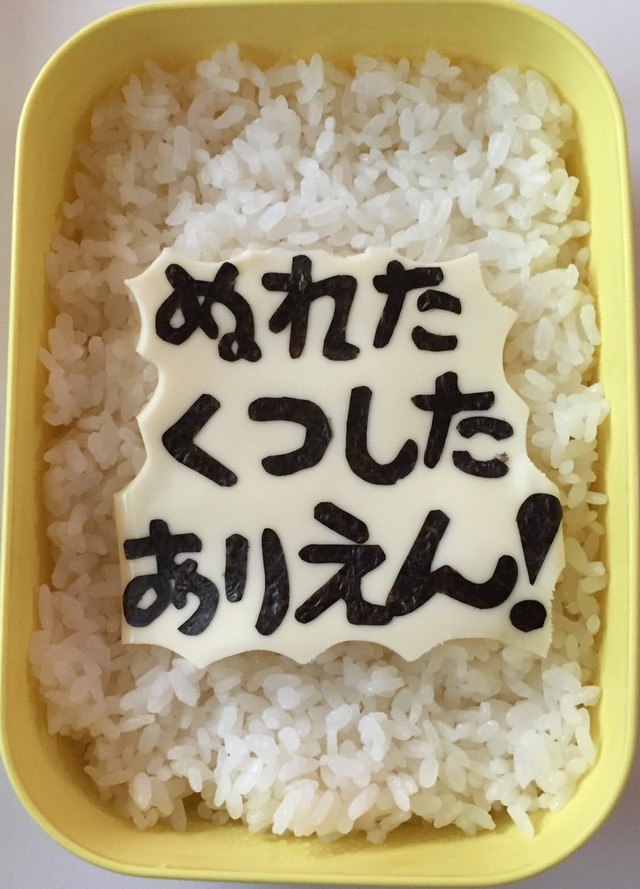 ぬれた
くつした
ありえん!